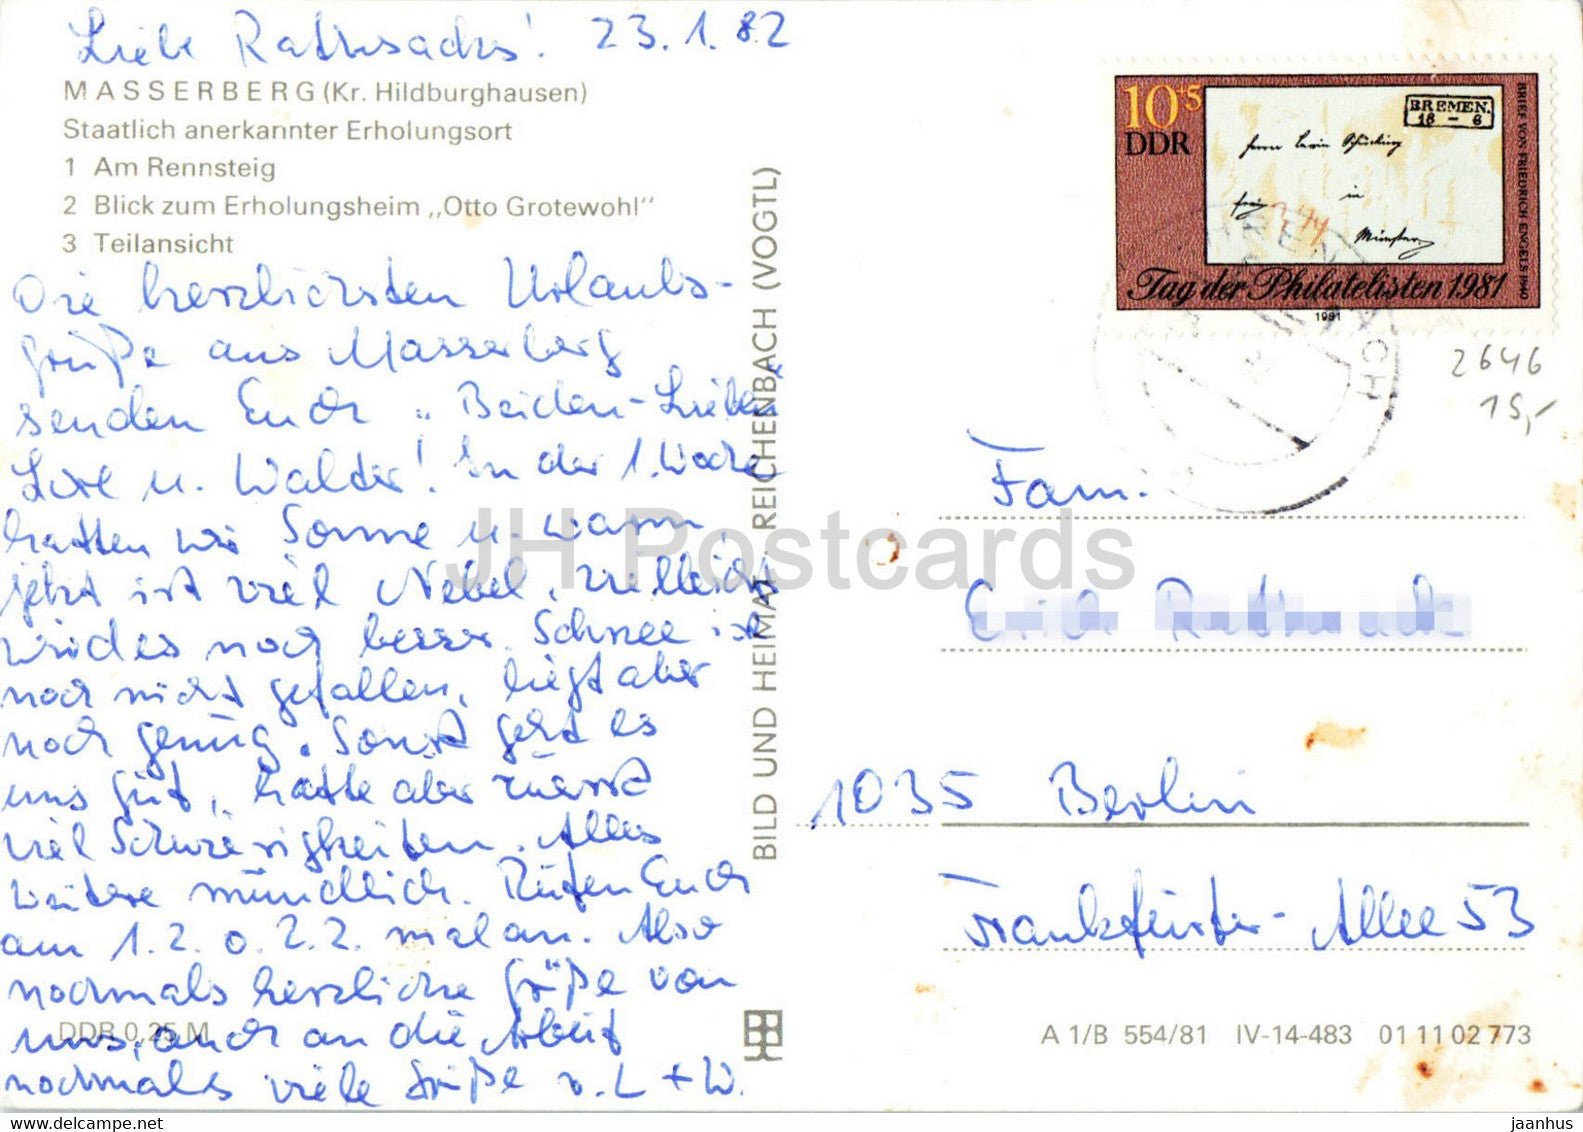 Liebe Rathsacks! 23.1.82
MASSERBERG (Kr. Hildburghausen)
Staatlich anerkannter Erholungsort
1 Am Rennsteig
2 Blick zum Erholungsheim „Otto Grotewohl"
3 Teilansicht
Die herzlichsten Urlaubs-
grüße aus Masserberg
senden Euch „Beiden-Lieben"
Lise u. Walder! In der 1. Woche
hatten wir Sonne u. warm,
jetzt ist viel Nebel, vielleicht
wird es noch besser. Schnee ist
noch nicht gefallen, liegt aber
noch genug. Sonst geht es
uns gut, hatte aber zuerst
viel Schwierigkeiten. Alles
weitere mündlich. Rufen Euch
am 1.2. o. 2.2. mal an. Also
nochmals herzliche Grüße von
uns, auch an die Arbeit
nochmals viele Grüße v. L + W.
DDR 0,25 M
BILD UND HEIMAT, REICHENBACH (VOGTL)
10+5
DDR
BREMEN.
18 - 6
Herrn Levin Schücking
frei
in
Münster
BRIEF VON FRIEDRICH ENGELS 1840
Tag der Philatelisten 1981
1981
2646
15,-
Fam.
Erich
1035 Berlin
Frankfurter-Allee 53
A 1/B 554/81 IV-14-483 01 11 02 773
JH Postcards
www.delcampe.net
jaanhus